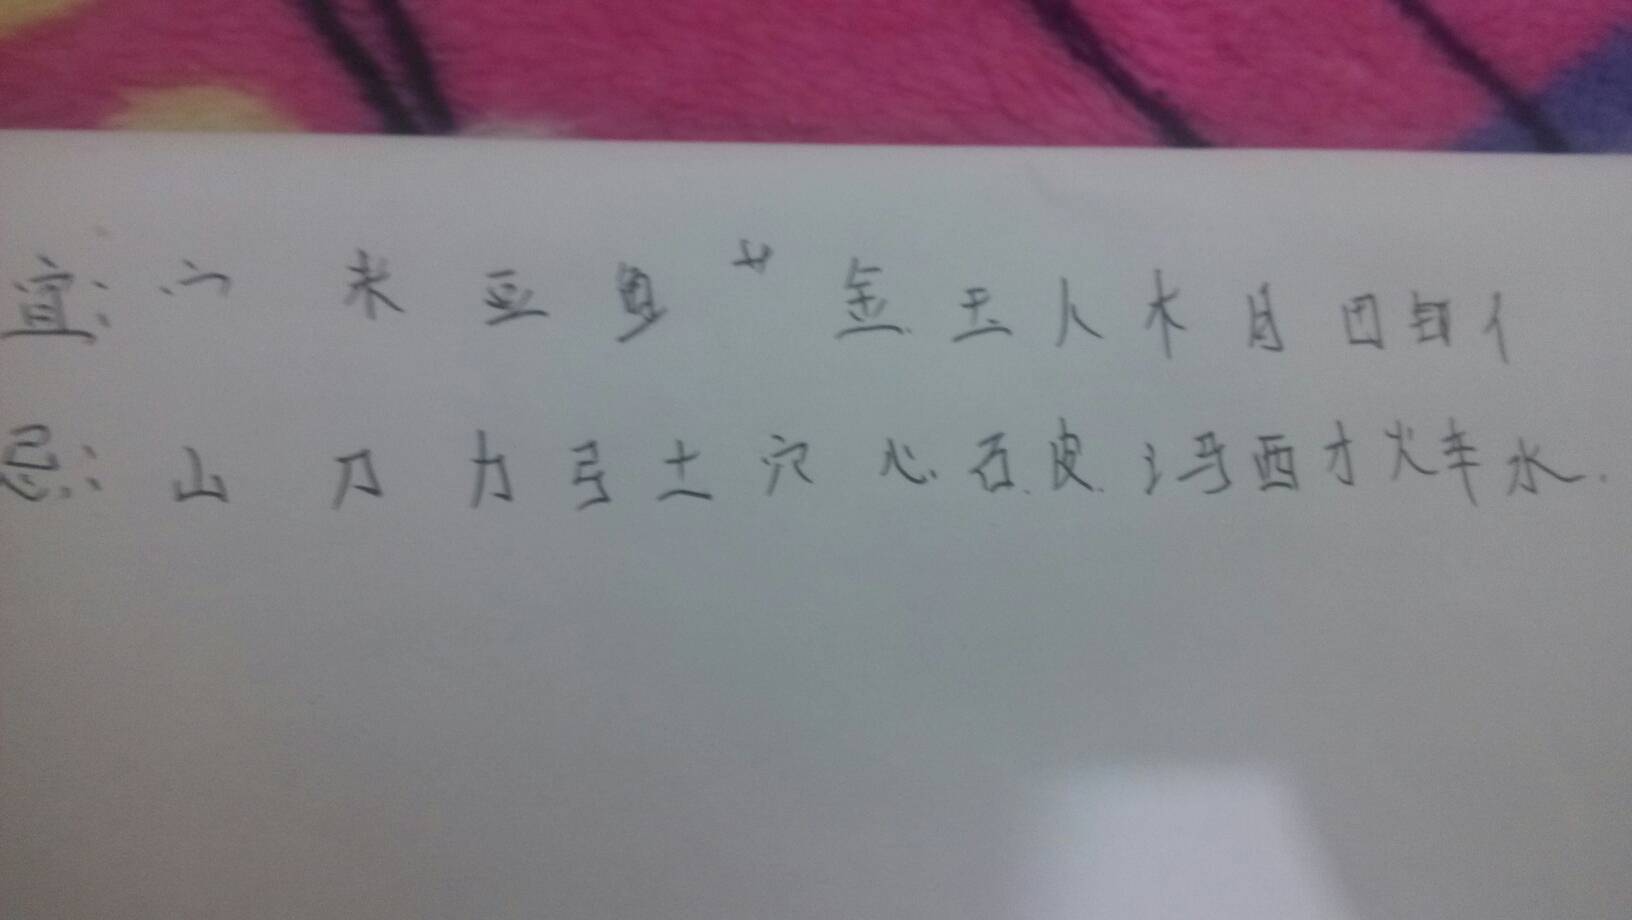 宜: 宀 米 豆 鱼 艹 金 玉 人 木 月 田 亻
忌: 山 刀 力 弓 土 穴 心 石 皮 氵 马 酉 才 火 车 水